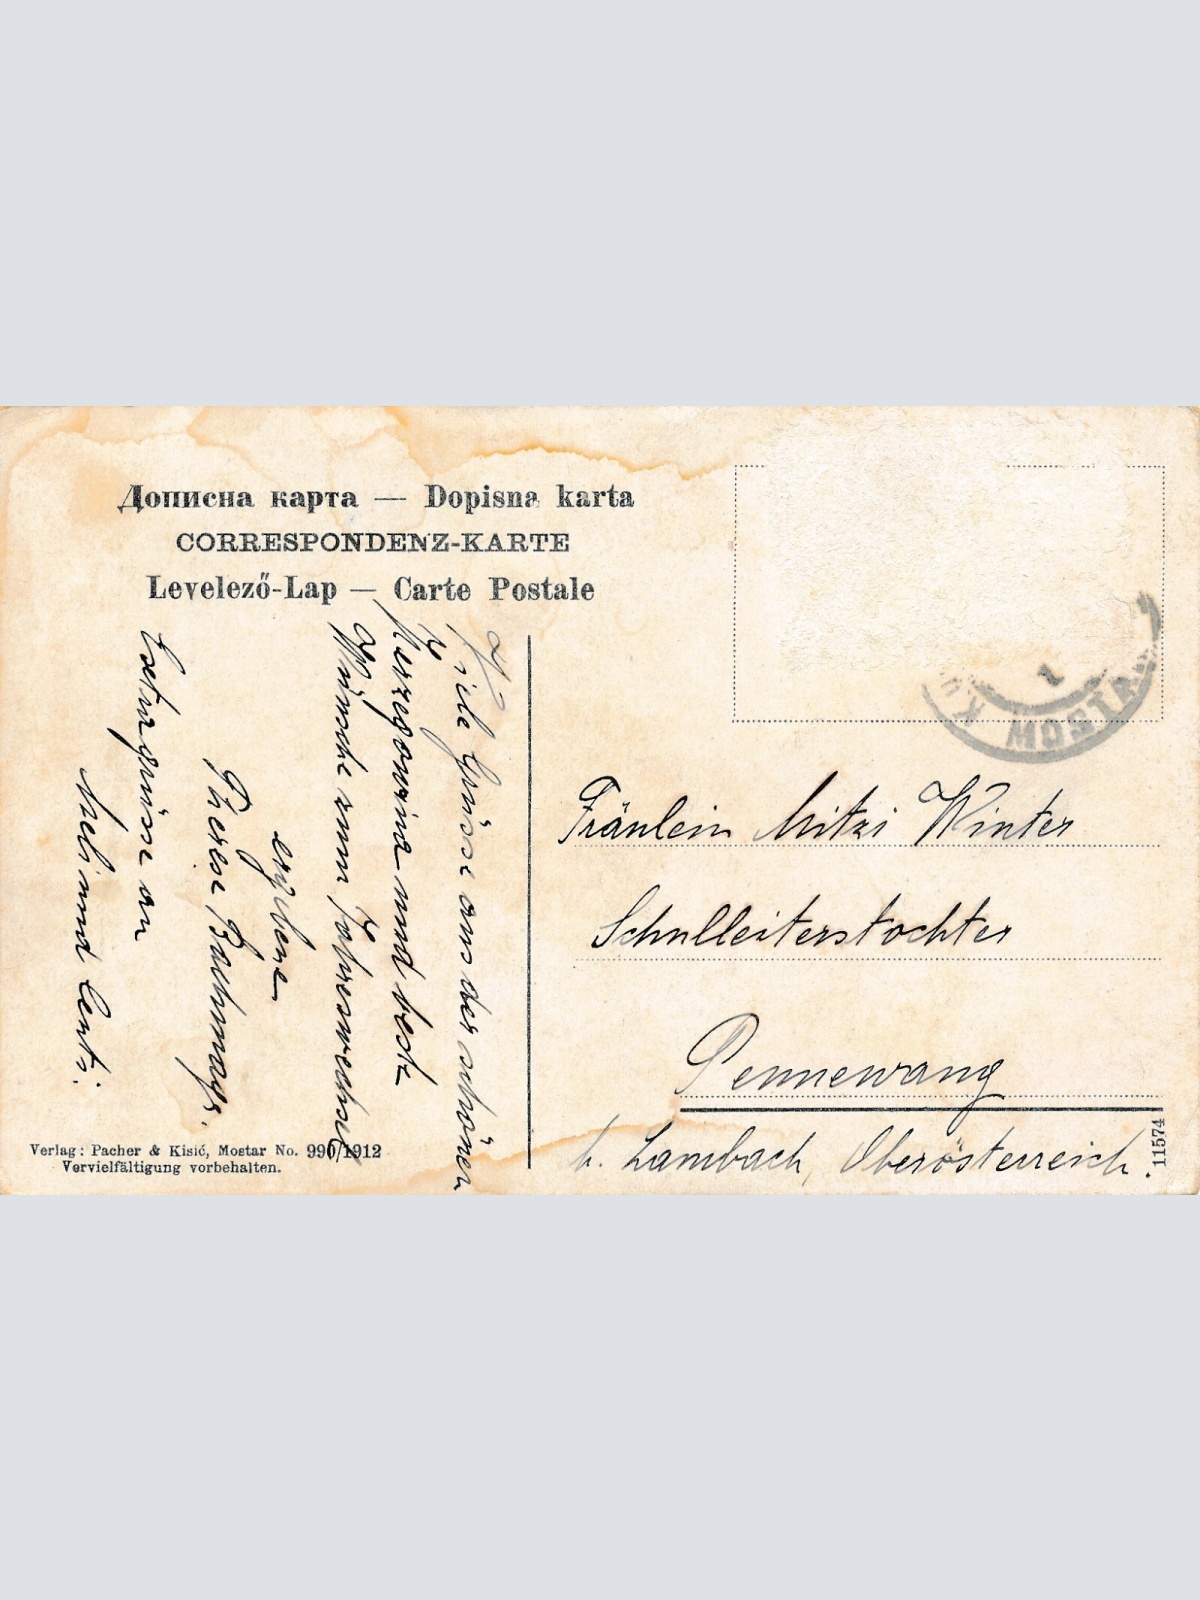 Дописна карта — Dopisna karta
CORRESPONDENZ-KARTE
Levelező-Lap — Carte Postale
Viele Grüsse aus der schönen
Herzegowina und beste
Wünsche zum Jahreswechsel
ergebene
Therese
Extragrüsse an
und
Fräulein Mitzi Winter
Schulleiterstochter
Pennewang
b. Lambach, Oberösterreich.
MOSTAR
1
Verlag: Pacher & Kisić, Mostar No. 990/1912
Vervielfältigung vorbehalten.
11574